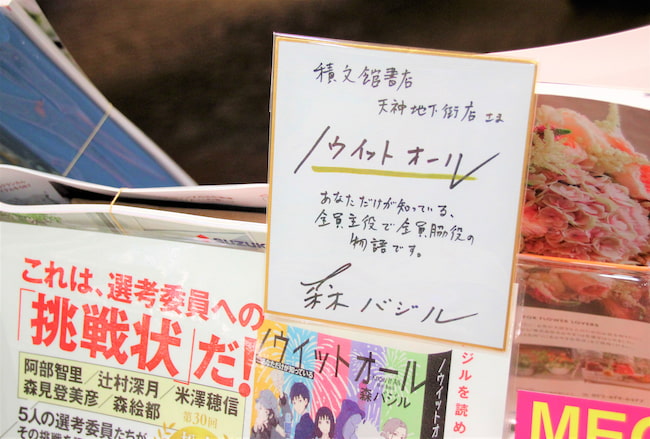 積文館書店
天神地下街店さま
ノウイットオール
あなただけが知っている、
全員主役で全員脇役の
物語です。
森バジル
SUZUK
これは、選考委員への
「挑戦状」だ!
阿部智里/辻村深月/米澤穂信
森見登美彦/森絵都
第30回
5人の選考委員たちが
ノウイットオール
あなただけが知っている
森バジル
ノウイットオ
ジルを読め
FOR FLOWER LOVERS
MEG